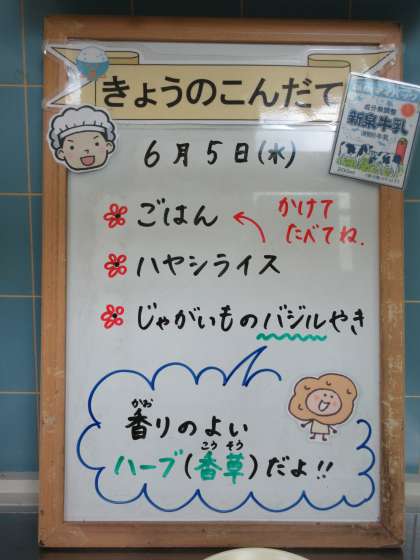 きょうのこんだて
6月5日(水)
ごはん
かけて
たべてね.
ハヤシライス
じゃがいものバジルやき
香りのよい
かお
ハーブ(香草)だよ!!
こう そう
新泉牛乳